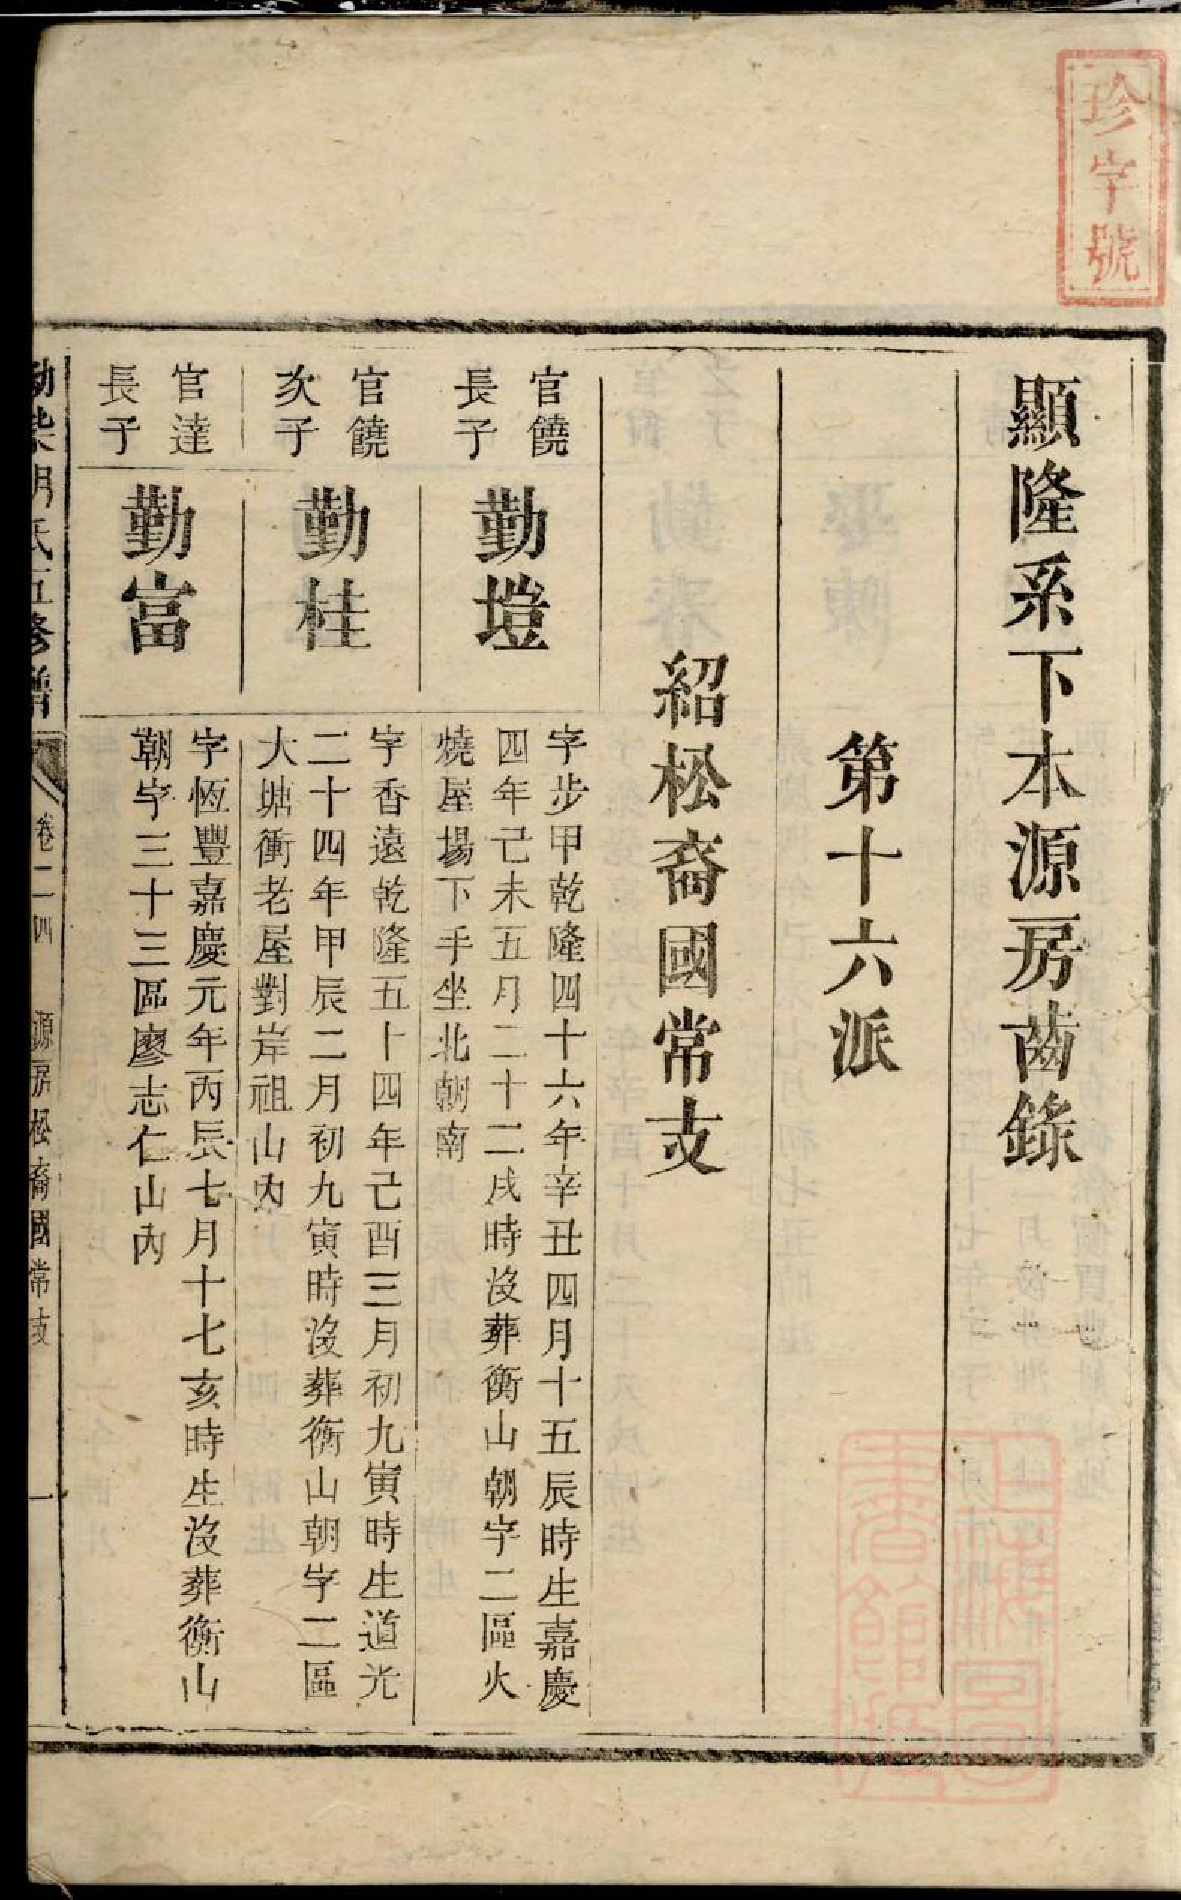 珍字號
顯隆系下本源房齒錄
第十六派
紹松裔國常支
官饒
長子
勤塏
字步甲乾隆四十六年辛丑四月十五辰時生嘉慶
四年己未五月二十二戌時沒葬衡山朝字二區火
燒屋場下手坐北朝南
官饒
次子
勤桂
字香遠乾隆五十四年己酉三月初九寅時生道光
二十四年甲辰二月初九寅時沒葬衡山朝字二區
大塘衝老屋對岸祖山內
官達
長子
勤富
字恆豐嘉慶元年丙辰七月十七亥時生沒葬衡山
朝字三十三區廖志仁山內
氏五修譜
卷二四
源房松裔國常支
一